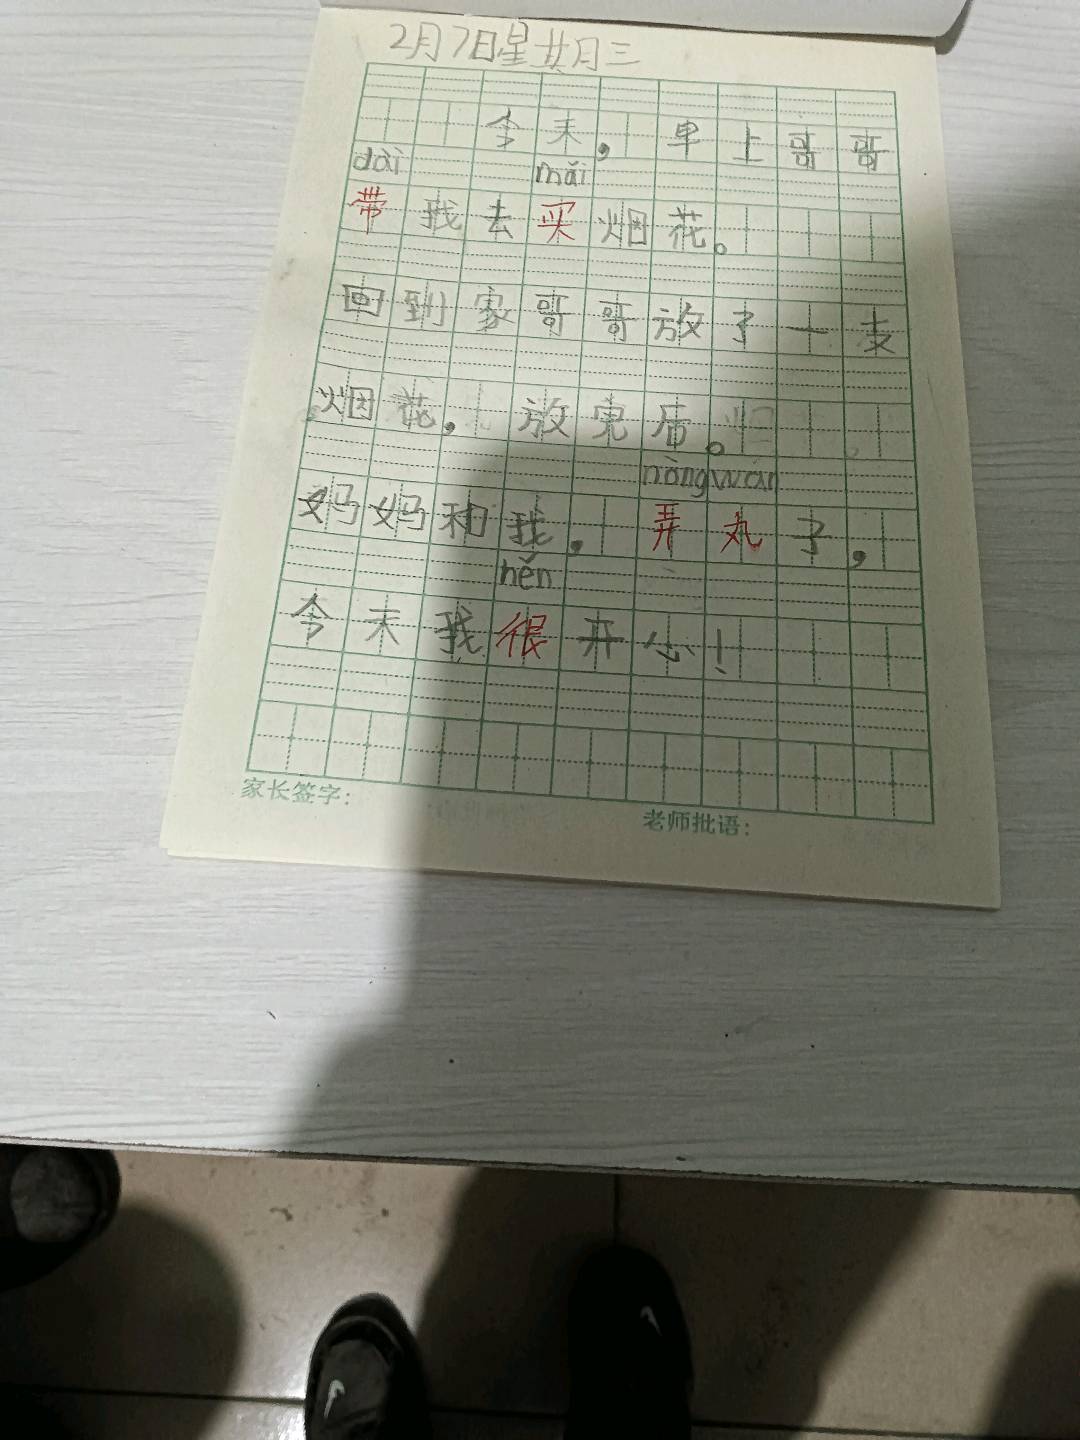 2月7日星其月三
今天，早上哥哥
dài mǎi
带我去买烟花。
回到家哥哥放了一支
烟花，放完后。
nòng wán
妈妈和我，弄丸子，
hěn
今天我很开心！
家长签字：
老师批语：